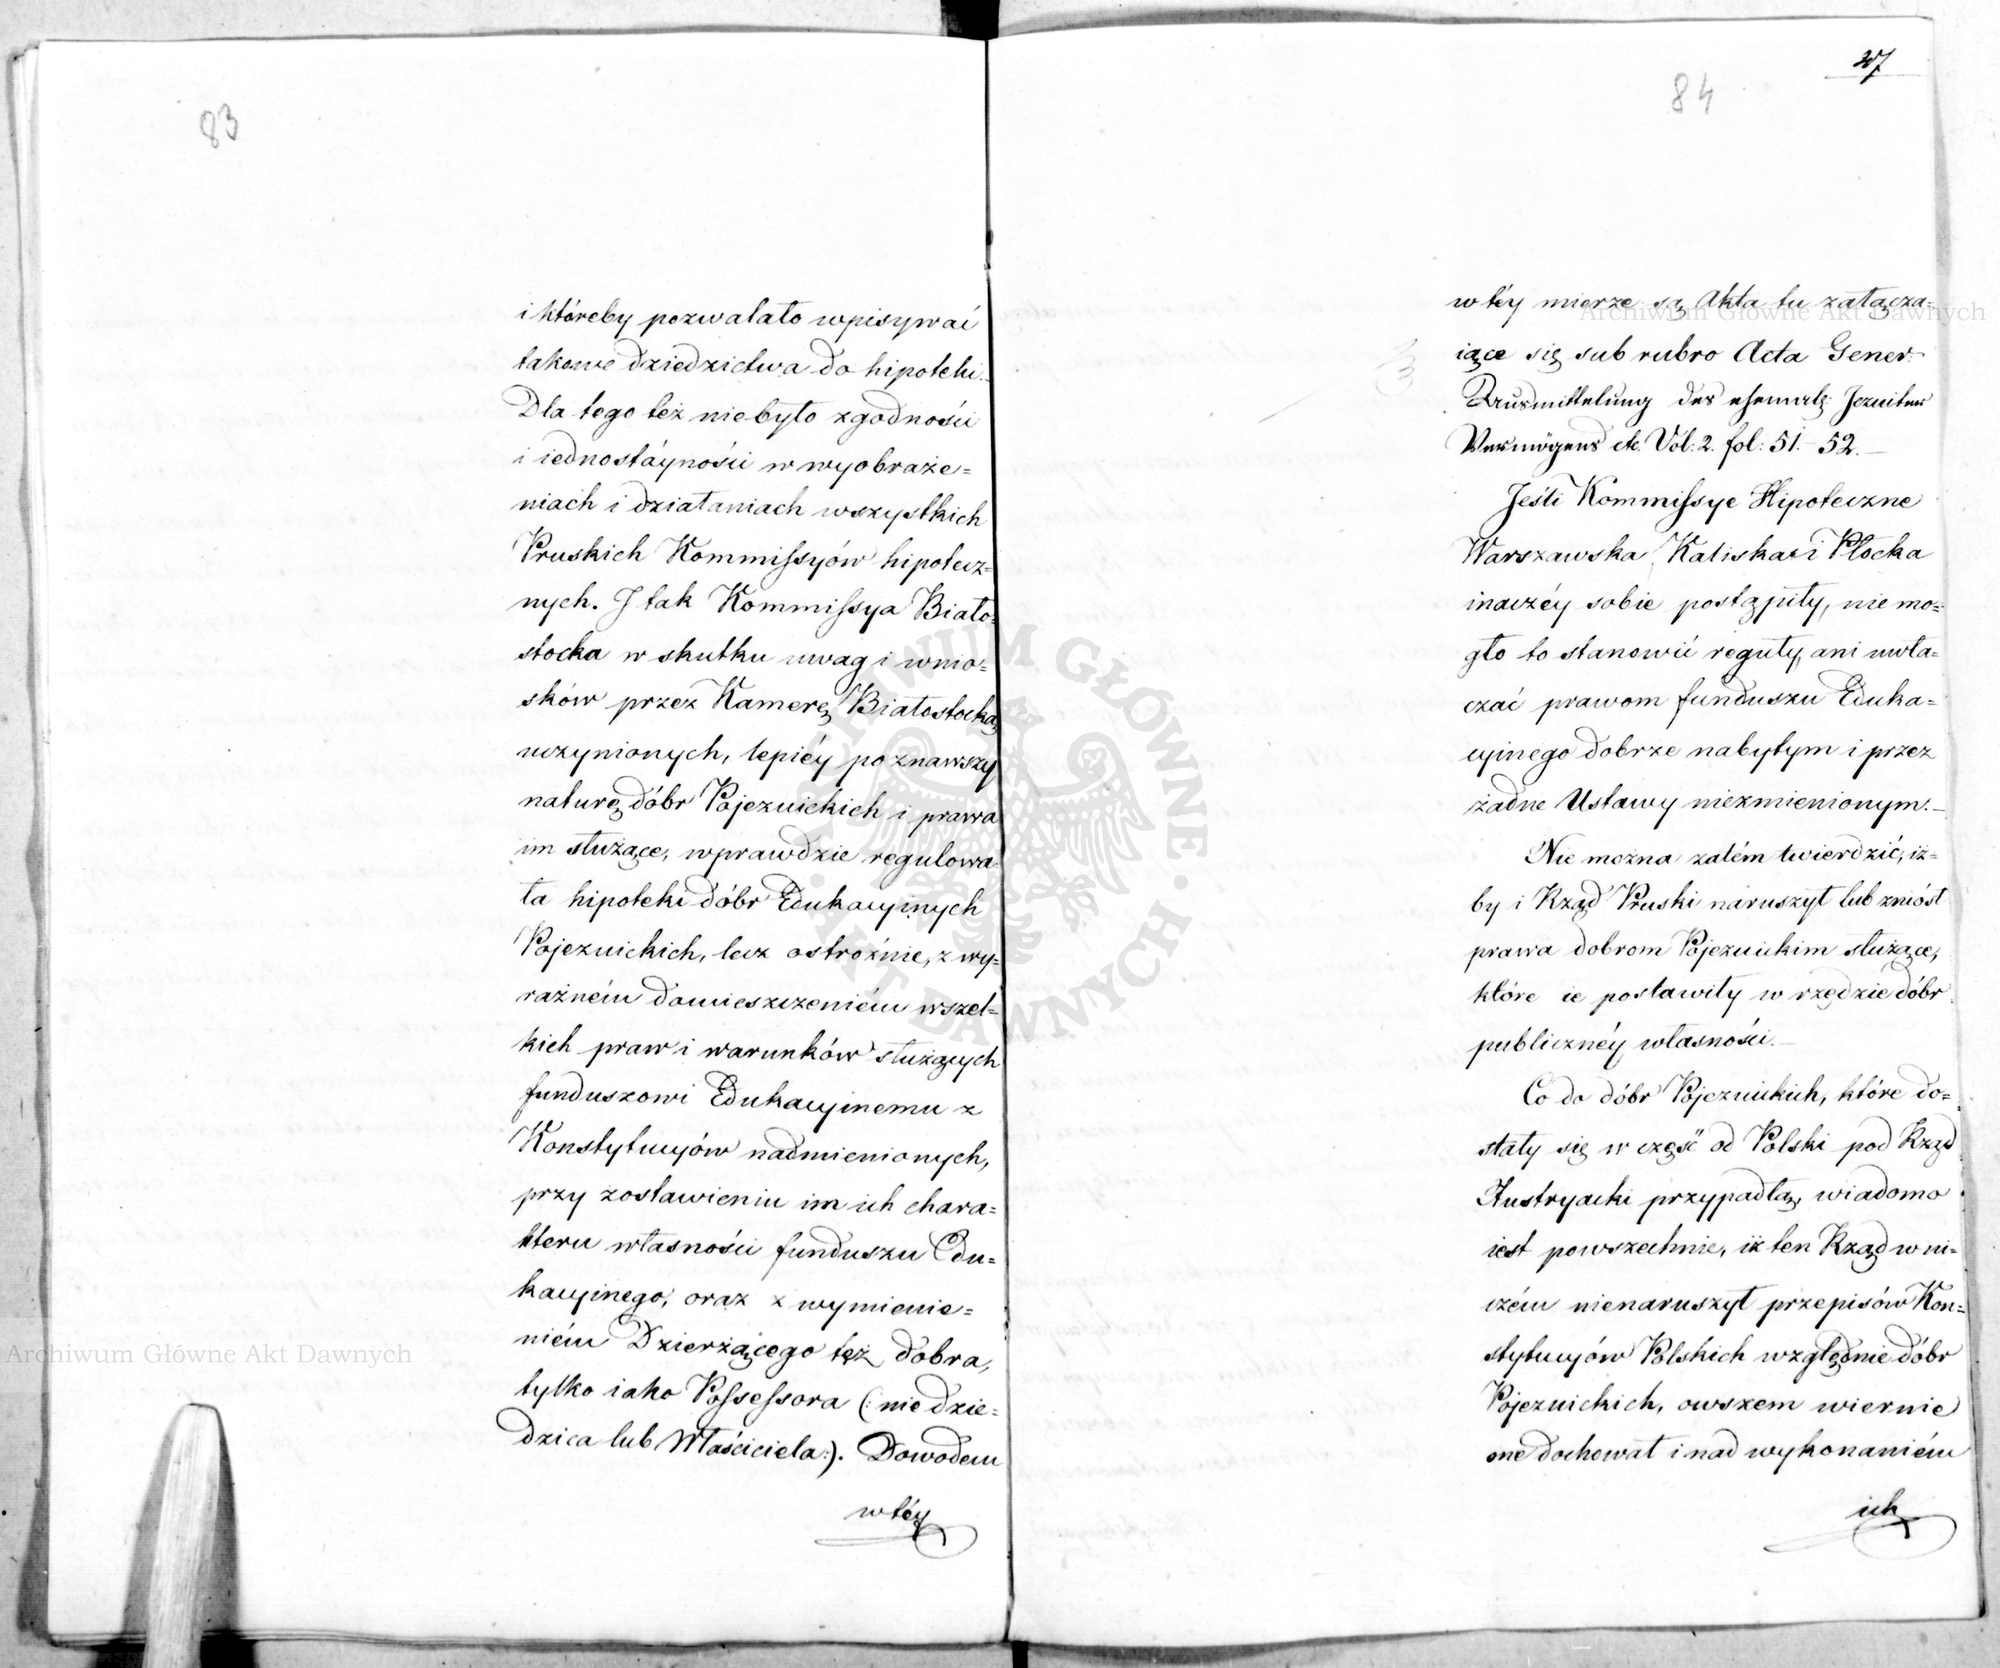 83
i któreby pozwalało wpisywać
takowe dziedzictwa do hipoteki.
Dla tego też niebyło zgodności
i iednostáyności w wyobraże=
niach i działaniach wszystkich
Pruskich Kommissyów hipotecz=
nych. I tak Kommissya Biało=
stocka w skutku uwag i wnio=
sków przez Kamerę Białostocką
uczynionych, lepiéy poznawszy
naturę dóbr Pojezuickich i prawa
im służące, wprawdzie regulowa=
ła hipoteki dóbr Edukacyinych
Pojezuickich, lecz ostrożnie, z wy=
raźném domieszczeniém wszel=
kich praw i warunków służących
funduszowi Edukacyinemu z
Konstytucyów nadmienionych,
przy zostawieniu im ich chara=
kteru własności funduszu Edu=
kacyinego, oraz z wymienie=
niém Dzierżącego też dobra,
tylko iako Possessora (: nie dzie=
dzica lub Właściciela:). Dowodem
w téy
27
84
w téy mierze są Akta tu załącza=
iące się sub rubro Acta Gener:
Ausmittelung des ehemalg: Jezuiten
Vermögens etc. Vol: 2. fol: 51.– 52.–
Jeśli Kommissye Hipoteczne
Warszawska, Kaliska i Płocka
inaczéy sobie postąpiły, nie mo=
gło to stanowić reguły, ani uwła=
czać prawom funduszu Eduka=
cyinego dobrze nabytym i przez
żadne Ustawy niezmienionym.–
Nie można zatém twierdzić, iż=
by i Rząd Pruski naruszył lub zniósł
prawa dobrom Pojezuickim służące,
które ie postawiły w rzędzie dóbr
publicznéy własności.–
Co do dóbr Pojezuickich, które do=
stały się w część od Polski pod Rząd
Austryacki przypadłą, wiadomo
iest powszechnie, iż ten Rząd w ni=
czém nienaruszył przepisów Kon=
stytucyów Polskich względnie dóbr
Pojezuickich, owszem wiernie
one dochował i nad wykonaniém
ich
Archiwum Główne Akt Dawnych
Archiwum Główne Akt Dawnych
ARCHIWUM GŁÓWNE · AKT DAWNYCH ·